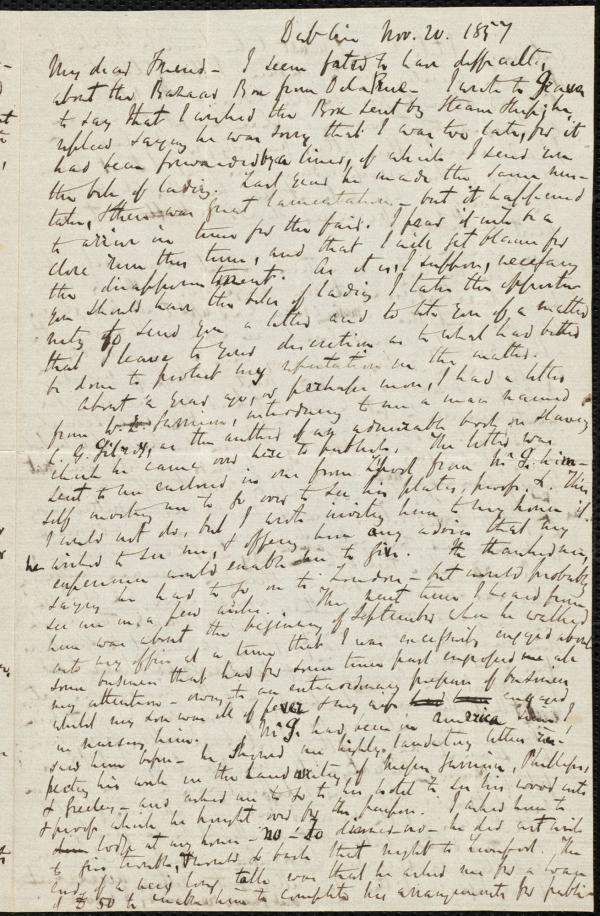 Dublin Nov. 20. 1857
My dear Friend - I seem fated to have difficulty
about the Bazaar Box from De la Rue - I wrote to
to say that I wished the Box sent by Steam Ship, he
replied saying he was sorry that I was too late, for it
had been forwarded by a liner, of which I send you
the bill of lading. Last year he made the same mis-
take, & there was great lamentation - but it happened
to arrive in time for the fair. I fear it will be a
close run this time, and that I will get blame for
the disappointment. As it is, I suppose, necessary
you should have the bill of lading I take this opportu-
nity to send you a letter and to tell you of a matter
that I leave to your discretion as to what had better
be done to protect my reputation in the matter.
About a year ago, or perhaps more, I had a letter
from Garrison, introducing to me a man named
as the author of an admirable book on slavery
which he came over here to publish. The letter was
sent to me enclosed in one from Lpool from Mr G. him-
self inviting me to go over to see his plates, proofs &c. This
I would not do, but I wrote inviting him to my house if
he wished to see me, & offering him any advice that my
experience would enable me to give. He thanked me,
saying he had to go on to London - but would probably
see me in a few weeks. The next time I heard from
him was about the beginning of September when he walked
into my office at a time that I was excessively engaged about
some business that had for some time past engrossed me all
my attention - owing to an extraordinary pressure of business
whilst my son was ill of fever & my wife engaged
in nursing him. Mr G. had been in America since I
saw him before - he showed me highly laudatory letters res-
pecting his work in the handwriting of Messrs Garrison, Phillips,
& Greeley - and asked me to go to his hotel to see his wood cuts
& proofs which he brought over for the purpose. I asked him to
lodge at my house - no - no - he did not wish
to give trouble, & would go back that night to Liverpool. The
end of a very long talk was that he asked me for a loan
of £50 to enable him to complete his arrangements for publi-